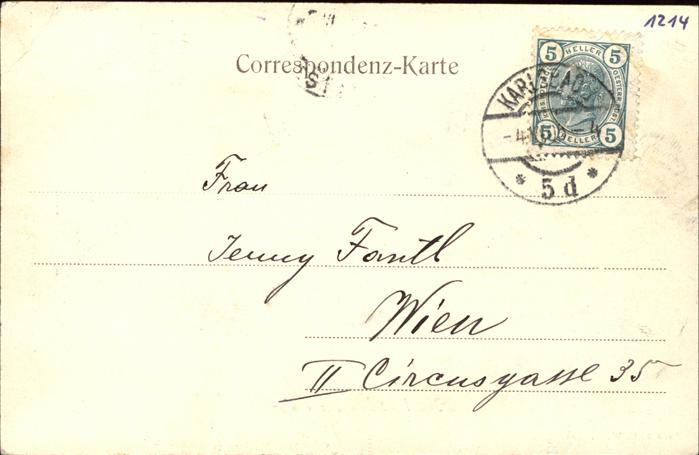 1214
Correspondenz-Karte
5 HELLER 5
5 HELLER 5
KARLSBAD
* 5 d *
Frau
Jenny Fantl
Wien
II Circusgasse 35